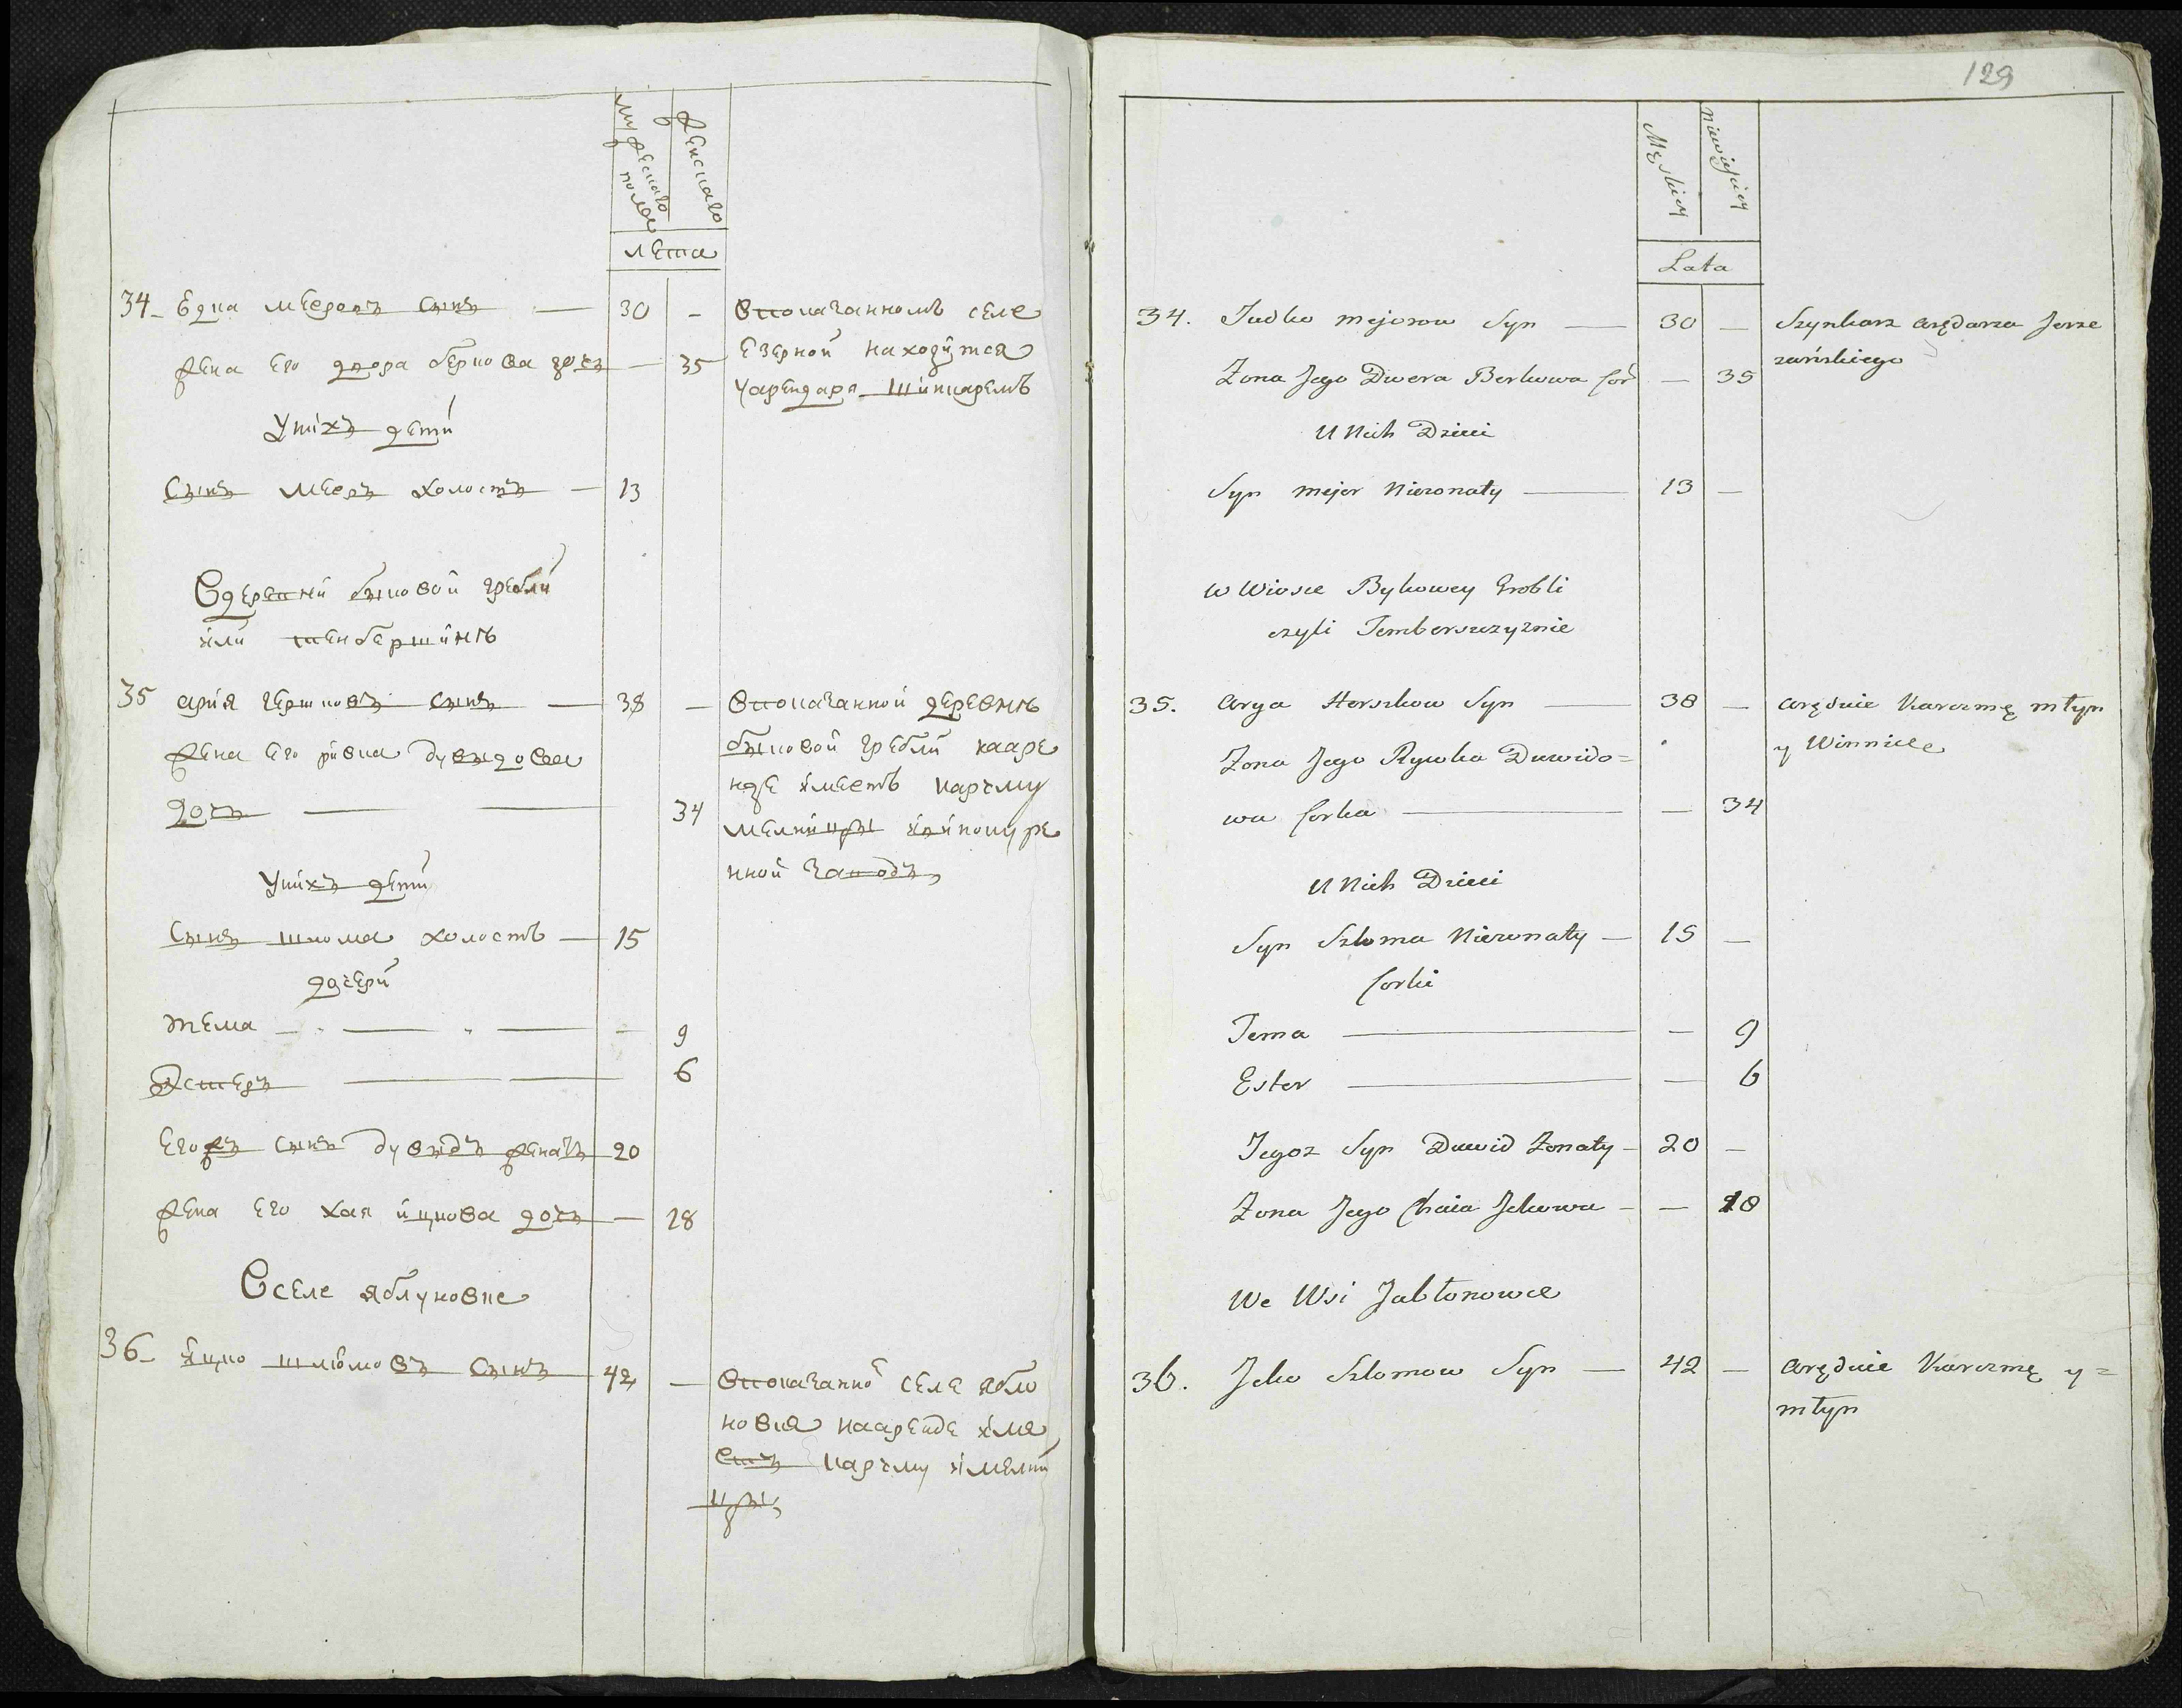 мужескаго
пола
женскаго
лета
34 Юдка мееровъ сынъ — 30 — Впоказанномъ селе
Езерной находится
жена его двора беркова дочь — 35
уарендаря шинкаремъ
Унихъ дети
Сынъ мееръ холостъ — 13
Вдеревни быковой гребли
или тенбершинѣ
35 ария гершковъ сынъ — 38 — Впоказанной деревнѣ
жена его ривка дувидова
быковой гребли нааре
нде имеетъ карчму
дочь — 34
мелницы ивинокуре
нной заводъ
Унихъ дети
Сынъ шлома холостъ — 15
дочери
тема — 9
Эстеръ — 6
Егожъ сынъ дувидъ женатъ 20
жена его хая ицкова дочь — 18
Вселе яблуновке
36 ицко шлиомовъ сынъ 42 — Впоказанно селе ябло
новке наарендe имя
етъ карчму имелни
цы
129
Męskiey
Niewieściey
Lata
34. Judko mejorow Syn — 30 — Szynkarz arędarza Jerze
zańskiego
Zona Jego Dwera Berkowa Cor — 35
U Nich Dzieci
Syn mejor Niezonaty — 13 —
w Wiosce Bykowey Grobli
czyli Temberszczyznie
35. Arya Herszkow Syn — 38 — aręduie Karczmę młyn
y Winnice
Zona Jego Rywka Duwido=
wa Corka — — 34
U Nich Dzieci
Syn Szloma Niezonaty — 15 —
Corki
Tema — — 9
Ester — — 6
Jegoz Syn Duwid Zonaty — 20 —
Zona Jego Chaia Jckowa — — 18
We Wsi Jabłonowce
36. Jcko Szlomow Syn — 42 — aręduie Karczmę y=
młyn